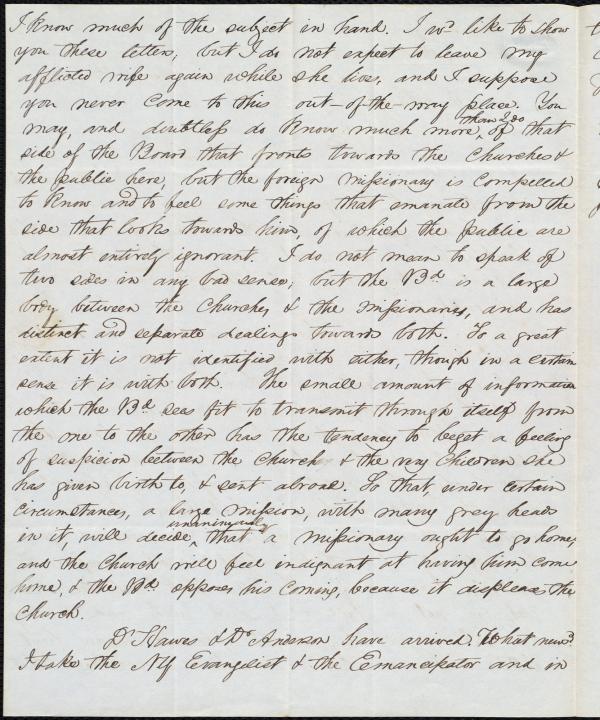 I know much of the subject in hand. I wd. like to show
you these letters, but I do not expect to leave my
afflicted wife again while she lives, and I suppose
you never come to this out-of-the-way place. You
may, and doubtless do know much more, than I do of that
side of the Board that fronts towards the Churches &
the public here, but the foreign missionary is compelled
to know and to feel some things that emanate from the
side that looks towards him, of which the public are
almost entirely ignorant. I do not mean to speak of
two sides in any bad sense; but the Bd. is a large
body between the Churches & the missionaries, and has
distinct and separate dealings towards both. To a great
extent it is not identified with either, though in a certain
sense it is with both. The small amount of information
which the Bd. sees fit to transmit through itself from
the one to the other has the tendency to beget a feeling
of suspicion between the Church & the very children she
has given birth to, & sent abroad. So that, under certain
circumstances, a large mission, with many grey heads
in it, will decide, unanimously that a missionary ought to go home,
and the Church will feel indignant at having him come
home, & the Bd. opposes his coming, because it displeases the
Church.
Dr. Hawes & Dr. Anderson have arrived. What news?
I take the N Y Evangelist & the Emancipator and in